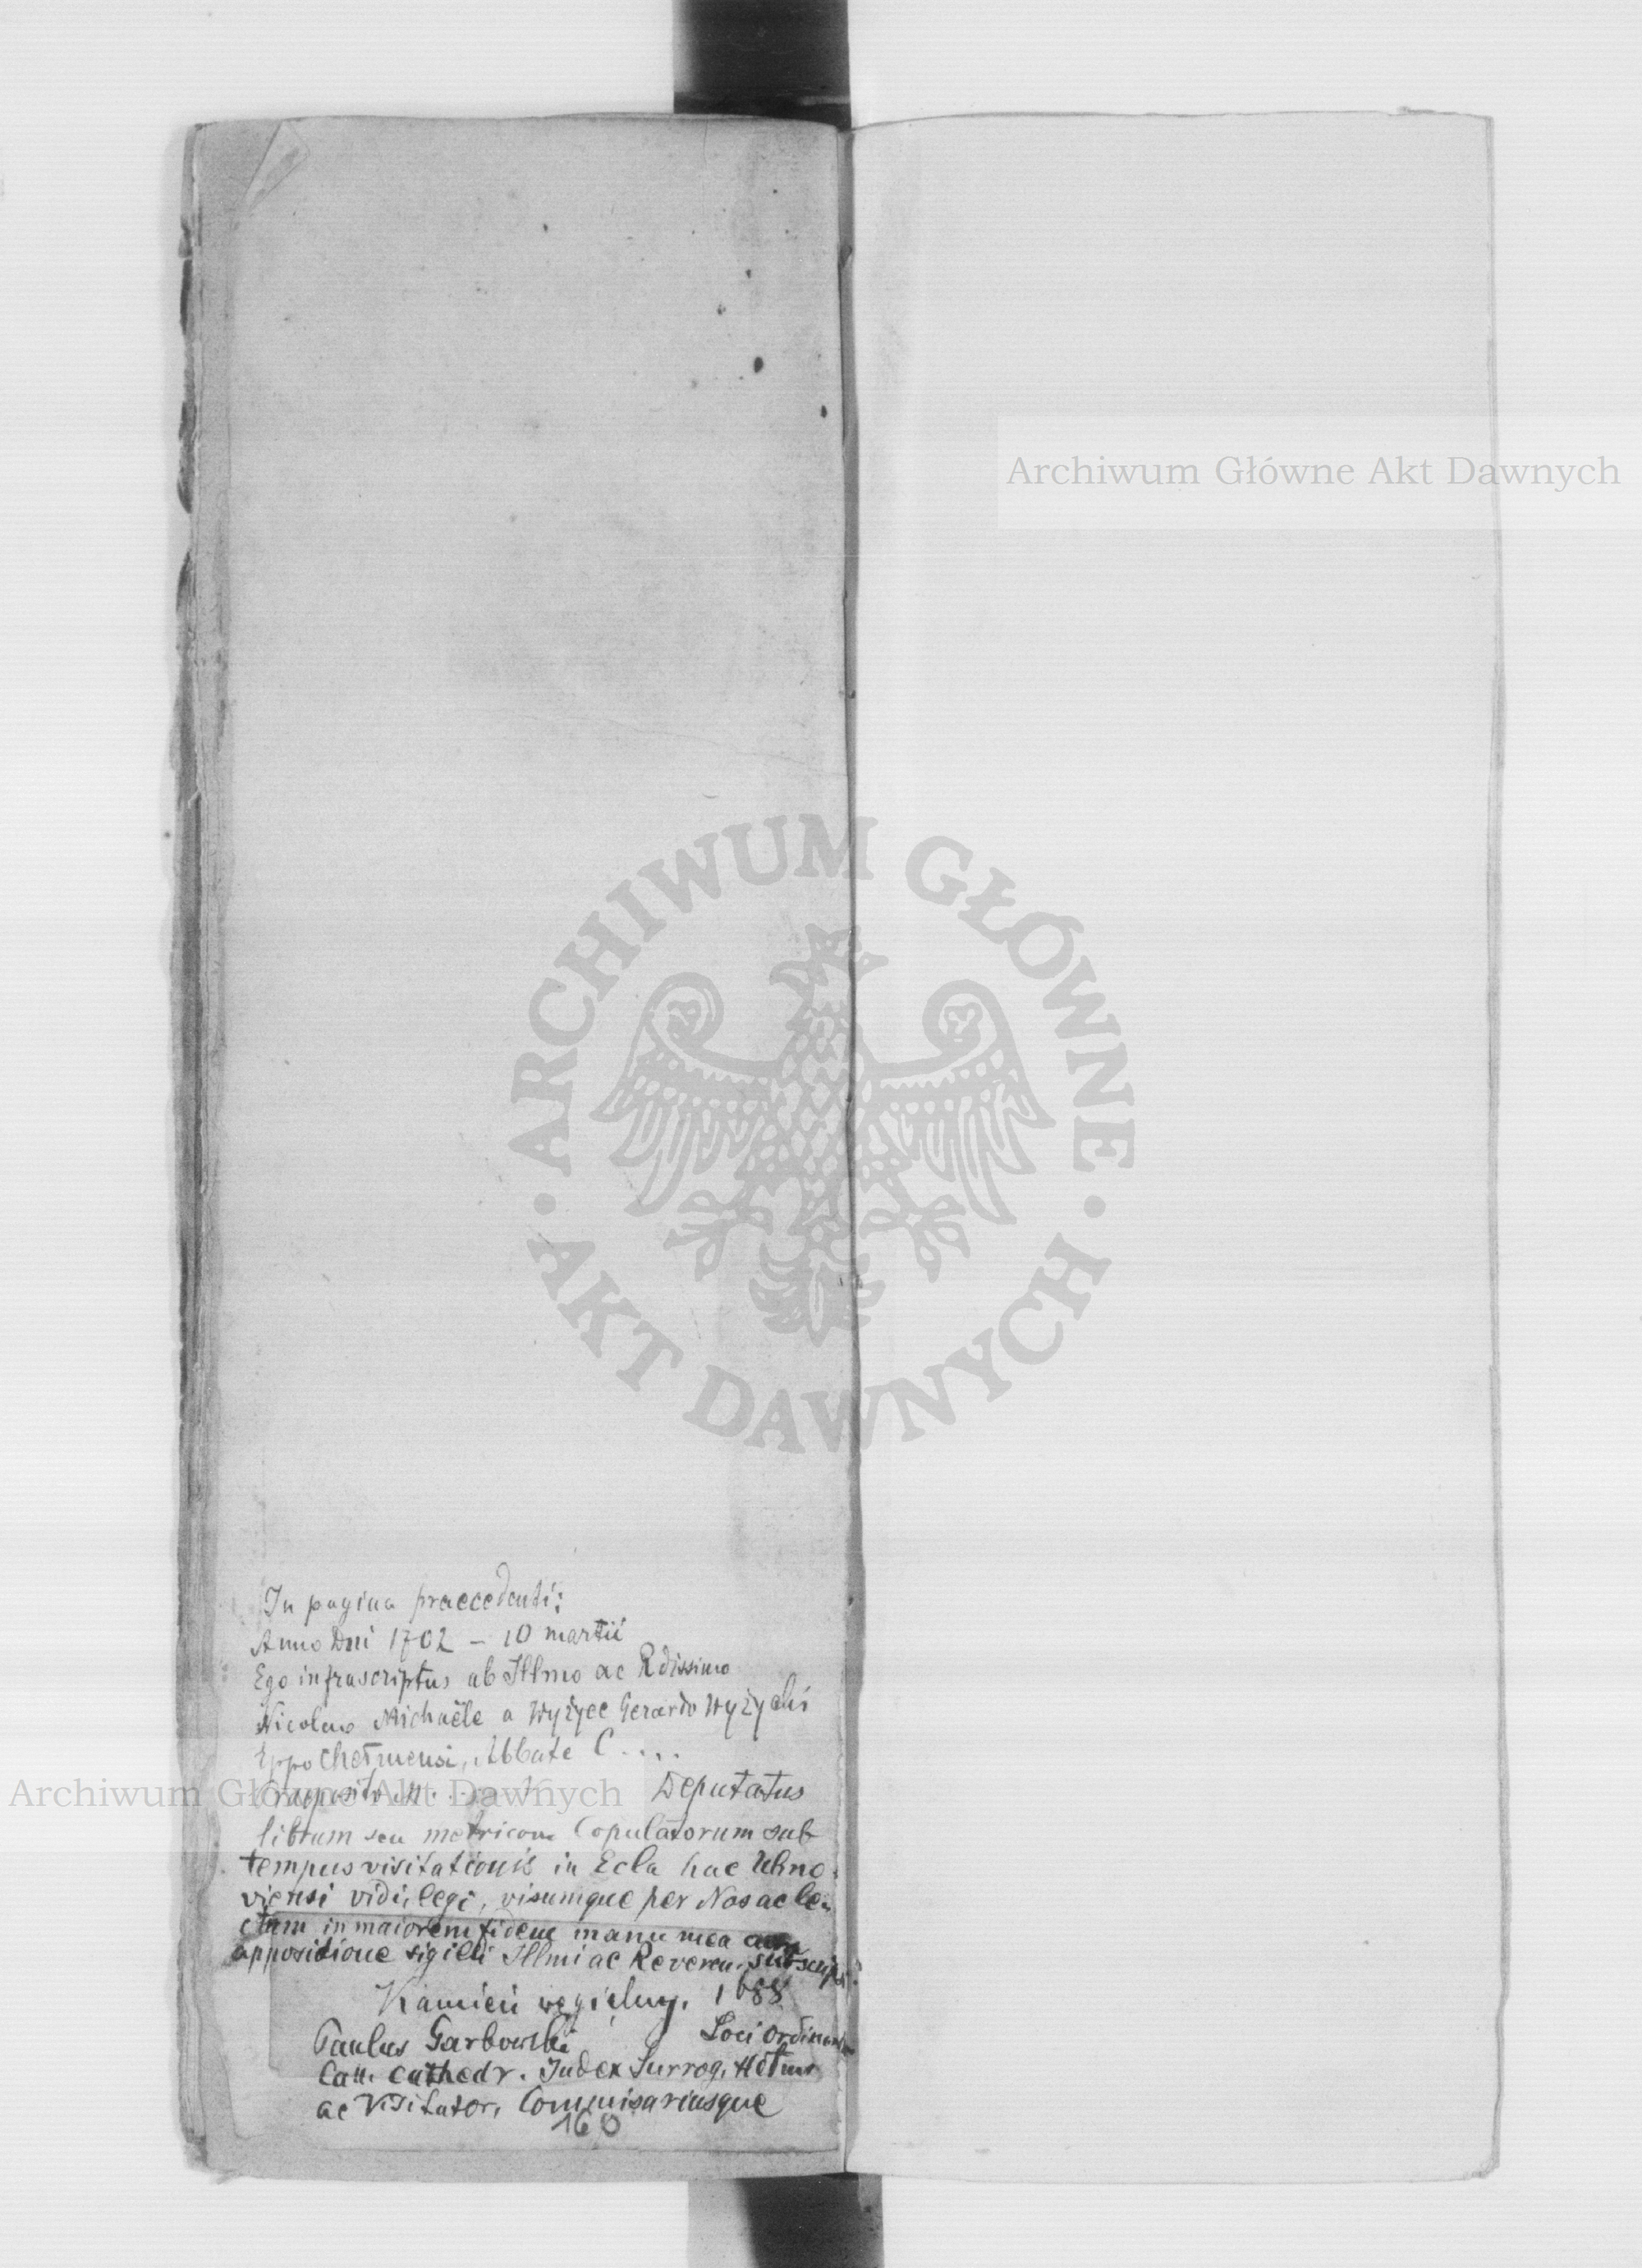 Archiwum Główne Akt Dawnych
ARCHIWUM GŁÓWNE
AKT DAWNYCH
In pagina praecedenti:
Anno Dni 1702 – 10 martii
Ego infrascriptus ab Illmo ac Rdissimo
Nicolao Michaële a Wyżyce Gerardo Wyżycki
Eppo Chełmensi, Abbate C....
Praeposito M. Deputatus
Archiwum Główne Akt Dawnych
librum seu metricam Copulatorum sub
tempus visitationis in Ecla hac Uhno-
viensi vidi, legi, visumque per Nos ac le-
ctum in maiorem fidem manu mea cum
appositione sigilli Illmi ac Reveren. subscripsi.
Kamień węgielny. 1688
Paulus Garbowski Loci Ordinarius
Can. Cathedr. Judex Surrog.
ac Visitator, Commisariusque
160